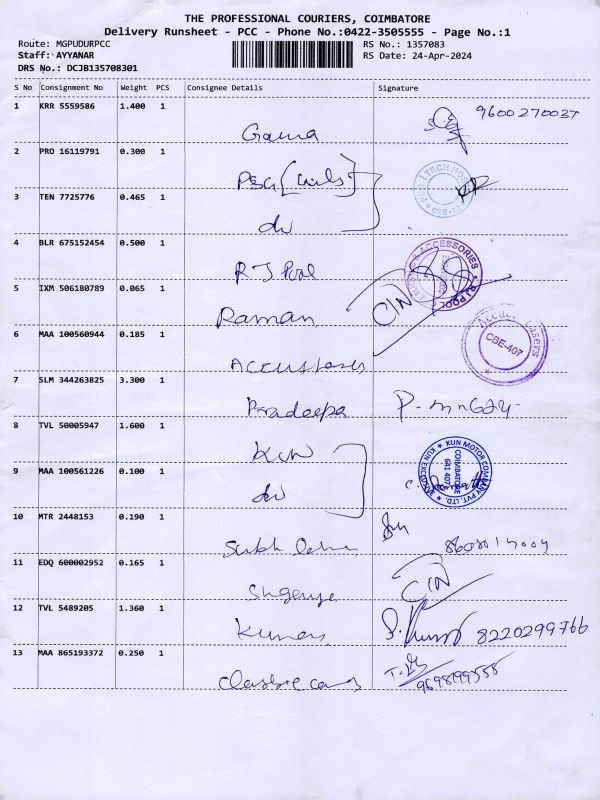 THE PROFESSIONAL COURIERS, COIMBATORE
Delivery Runsheet - PCC - Phone No.:0422-3505555 - Page No.:1
Route: MGPUDURPCC
RS No.: 1357083
Staff: AYYANAR
RS Date: 24-Apr-2024
DRS No.: DCJB135708301
S No Consignment No Weight PCS Consignee Details Signature
1 KRR 5559586 1.400 1
9600270037
2 PRO 16119791 0.300 1
PSG
3 TEN 7725776 0.465 1
do
4 BLR 675152454 0.500 1
RJ Pool
ACCESSORIES
RJ POOL
5 IXM 506180789 0.065 1
Raman
6 MAA 100560944 0.185 1
CBE-407
7 SLM 344263825 3.300 1
Pradeepa
8 TVL 50005947 1.600 1
Kun
KUN MOTOR COMPANY PVT. LTD.
COIMBATORE
641 407
9 MAA 100561226 0.100 1
do
10 MTR 2448153 0.190 1
11 EDQ 600002952 0.165 1
12 TVL 5489205 1.360 1
Kumar
8220299766
13 MAA 865193372 0.250 1
Classic cars